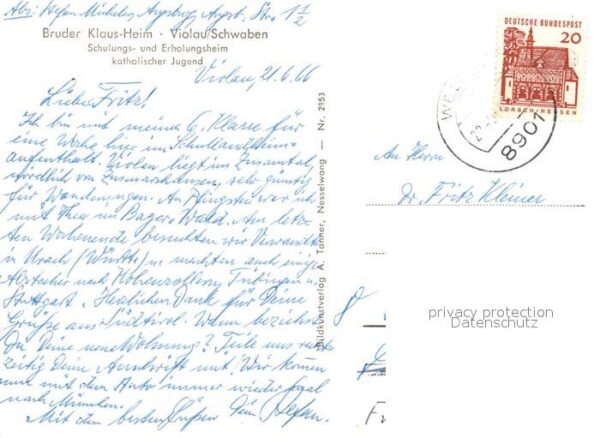 Abs: Stefan Augsburg, Augsb. Str. 1 1/2
Bruder Klaus-Heim · Violau/Schwaben
Schulungs- und Erholungsheim
katholischer Jugend
Violau, 21.6.66
Lieber Fritz!
Ich bin mit meiner 6. Klasse für
eine Woche hier im Schullandheim-
aufenthalt. Violau liegt im Zusamtal,
nördlich von Zusmarshausen, sehr günstig
für Wanderungen. An Pfingsten war ich
mit Thea im Bayer. Wald. Am letz-
ten Wochenende besuchten wir Verwandte
in Urach (Württ) u. machten auch einige
Abstecher nach Hohenzollern, Tübingen u.
Stuttgart. Herzlichen Dank für Deine
Grüße aus Südtirol. Wann beziehst
Du Deine neue Wohnung? Teile uns recht-
zeitig Deine Anschrift mit. Wir kommen
mit dem Auto immer wieder mal
nach München.
Mit den besten Grüßen Dein Stefan.
Bildkunstverlag A. Tanner, Nesselwang — Nr. 2953
DEUTSCHE BUNDESPOST
20
LORSCH/HESSEN
8901
An Herrn
Dr. Fritz Kleiner
8
privacy protection
Datenschutz